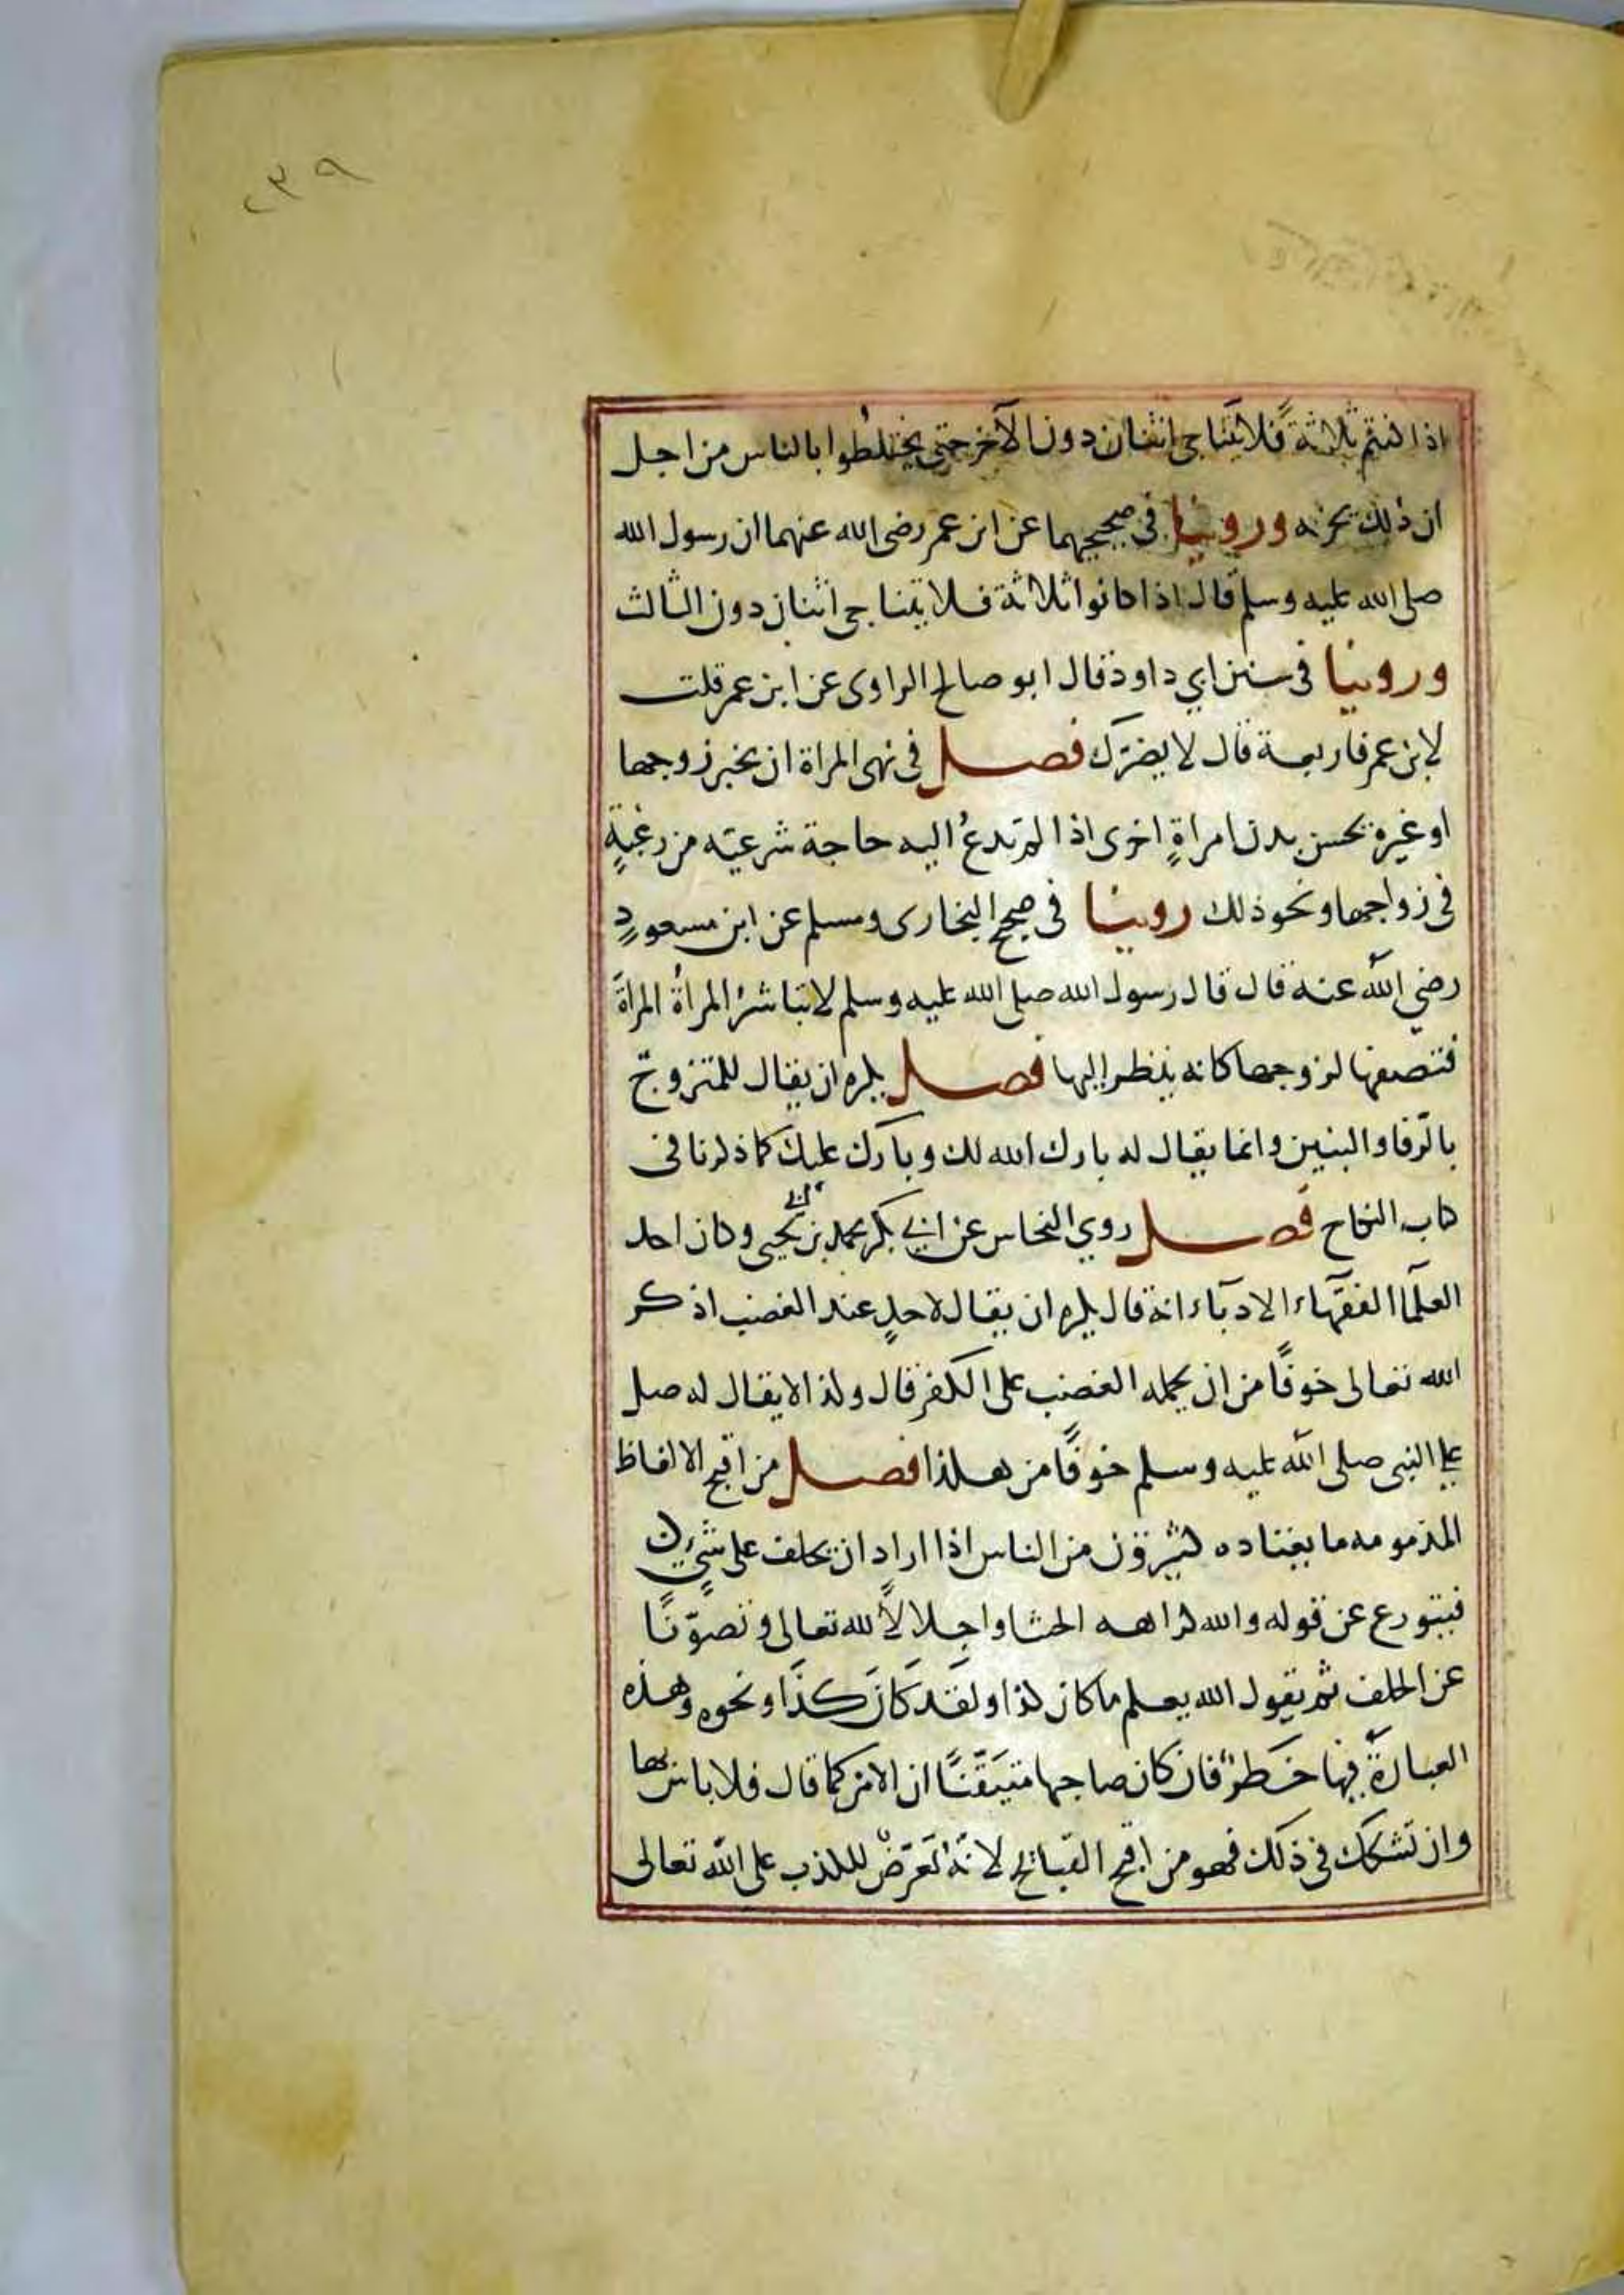 ٢٣٩
اذا كنتم ثلاثة فلا يتناجى اثنان دون الآخر حتى يختلطوا بالناس من اجل
ان ذلك يحزنه وروينا في صحيحيهما عن ابن عمر رضي الله عنهما ان رسول الله
صلى الله عليه وسلم قال اذا كانوا ثلاثة فلا يتناجى اثنان دون الثالث
وروينا في سنن ابي داود قال ابو صالح الراوى عن ابن عمر قلت
لابن عمر فاربعة قال لا يضرك فصل في نهى المراة ان تخبر زوجها
او غيره بحسن بدن امراةٍ اخرى اذا لم تدعُ اليه حاجة شرعيّه من رغبةٍ
في زواجها ونحو ذلك روينا في صحيح البخارى ومسلم عن ابن مسعودٍ
رضي الله عنه قال قال رسول الله صلى الله عليه وسلم لا تباشرُ المراةُ المراةَ
فتصفها لزوجها كانه ينظر اليها فصل يكره ان يقال للمتزوّج
بالرّفا والبنين وانما يقال له بارك الله لك وبارك عليك كما ذكرنا في
كتاب النكاح فصل روي النحاس عن ابي بكر محمد بن يحيى وكان احد
العلما الفقهاء الادباء انه قال يكره ان يقال لاحدٍ عند الغضب اذكر
الله تعالى خوفًا من ان يحمله الغضب على الكفر قال وكذا لا يقال له صل
على النبى صلى الله عليه وسلم خوفًا من هذا فصل من اقبح الالفاظ
المذمومه ما يعتاده كثيرون من الناس اذا اراد ان يحلف على شيءٍ
فيتورع عن قوله والله كراهه الحنث او اجلالاً لله تعالى وتصوّنًا
عن الحلف ثم يقول الله يعلم ما كان كذا او لقد كانَ كذَا ونحوه وهذه
العبارةُ فيها خطرٌ فان كان صاحبها متيقّنًا ان الامر كما قال فلا باس بها
وان تشكك في ذلك فهو من اقبح القبائح لانّه تعرّضٌ للكذب على الله تعالى